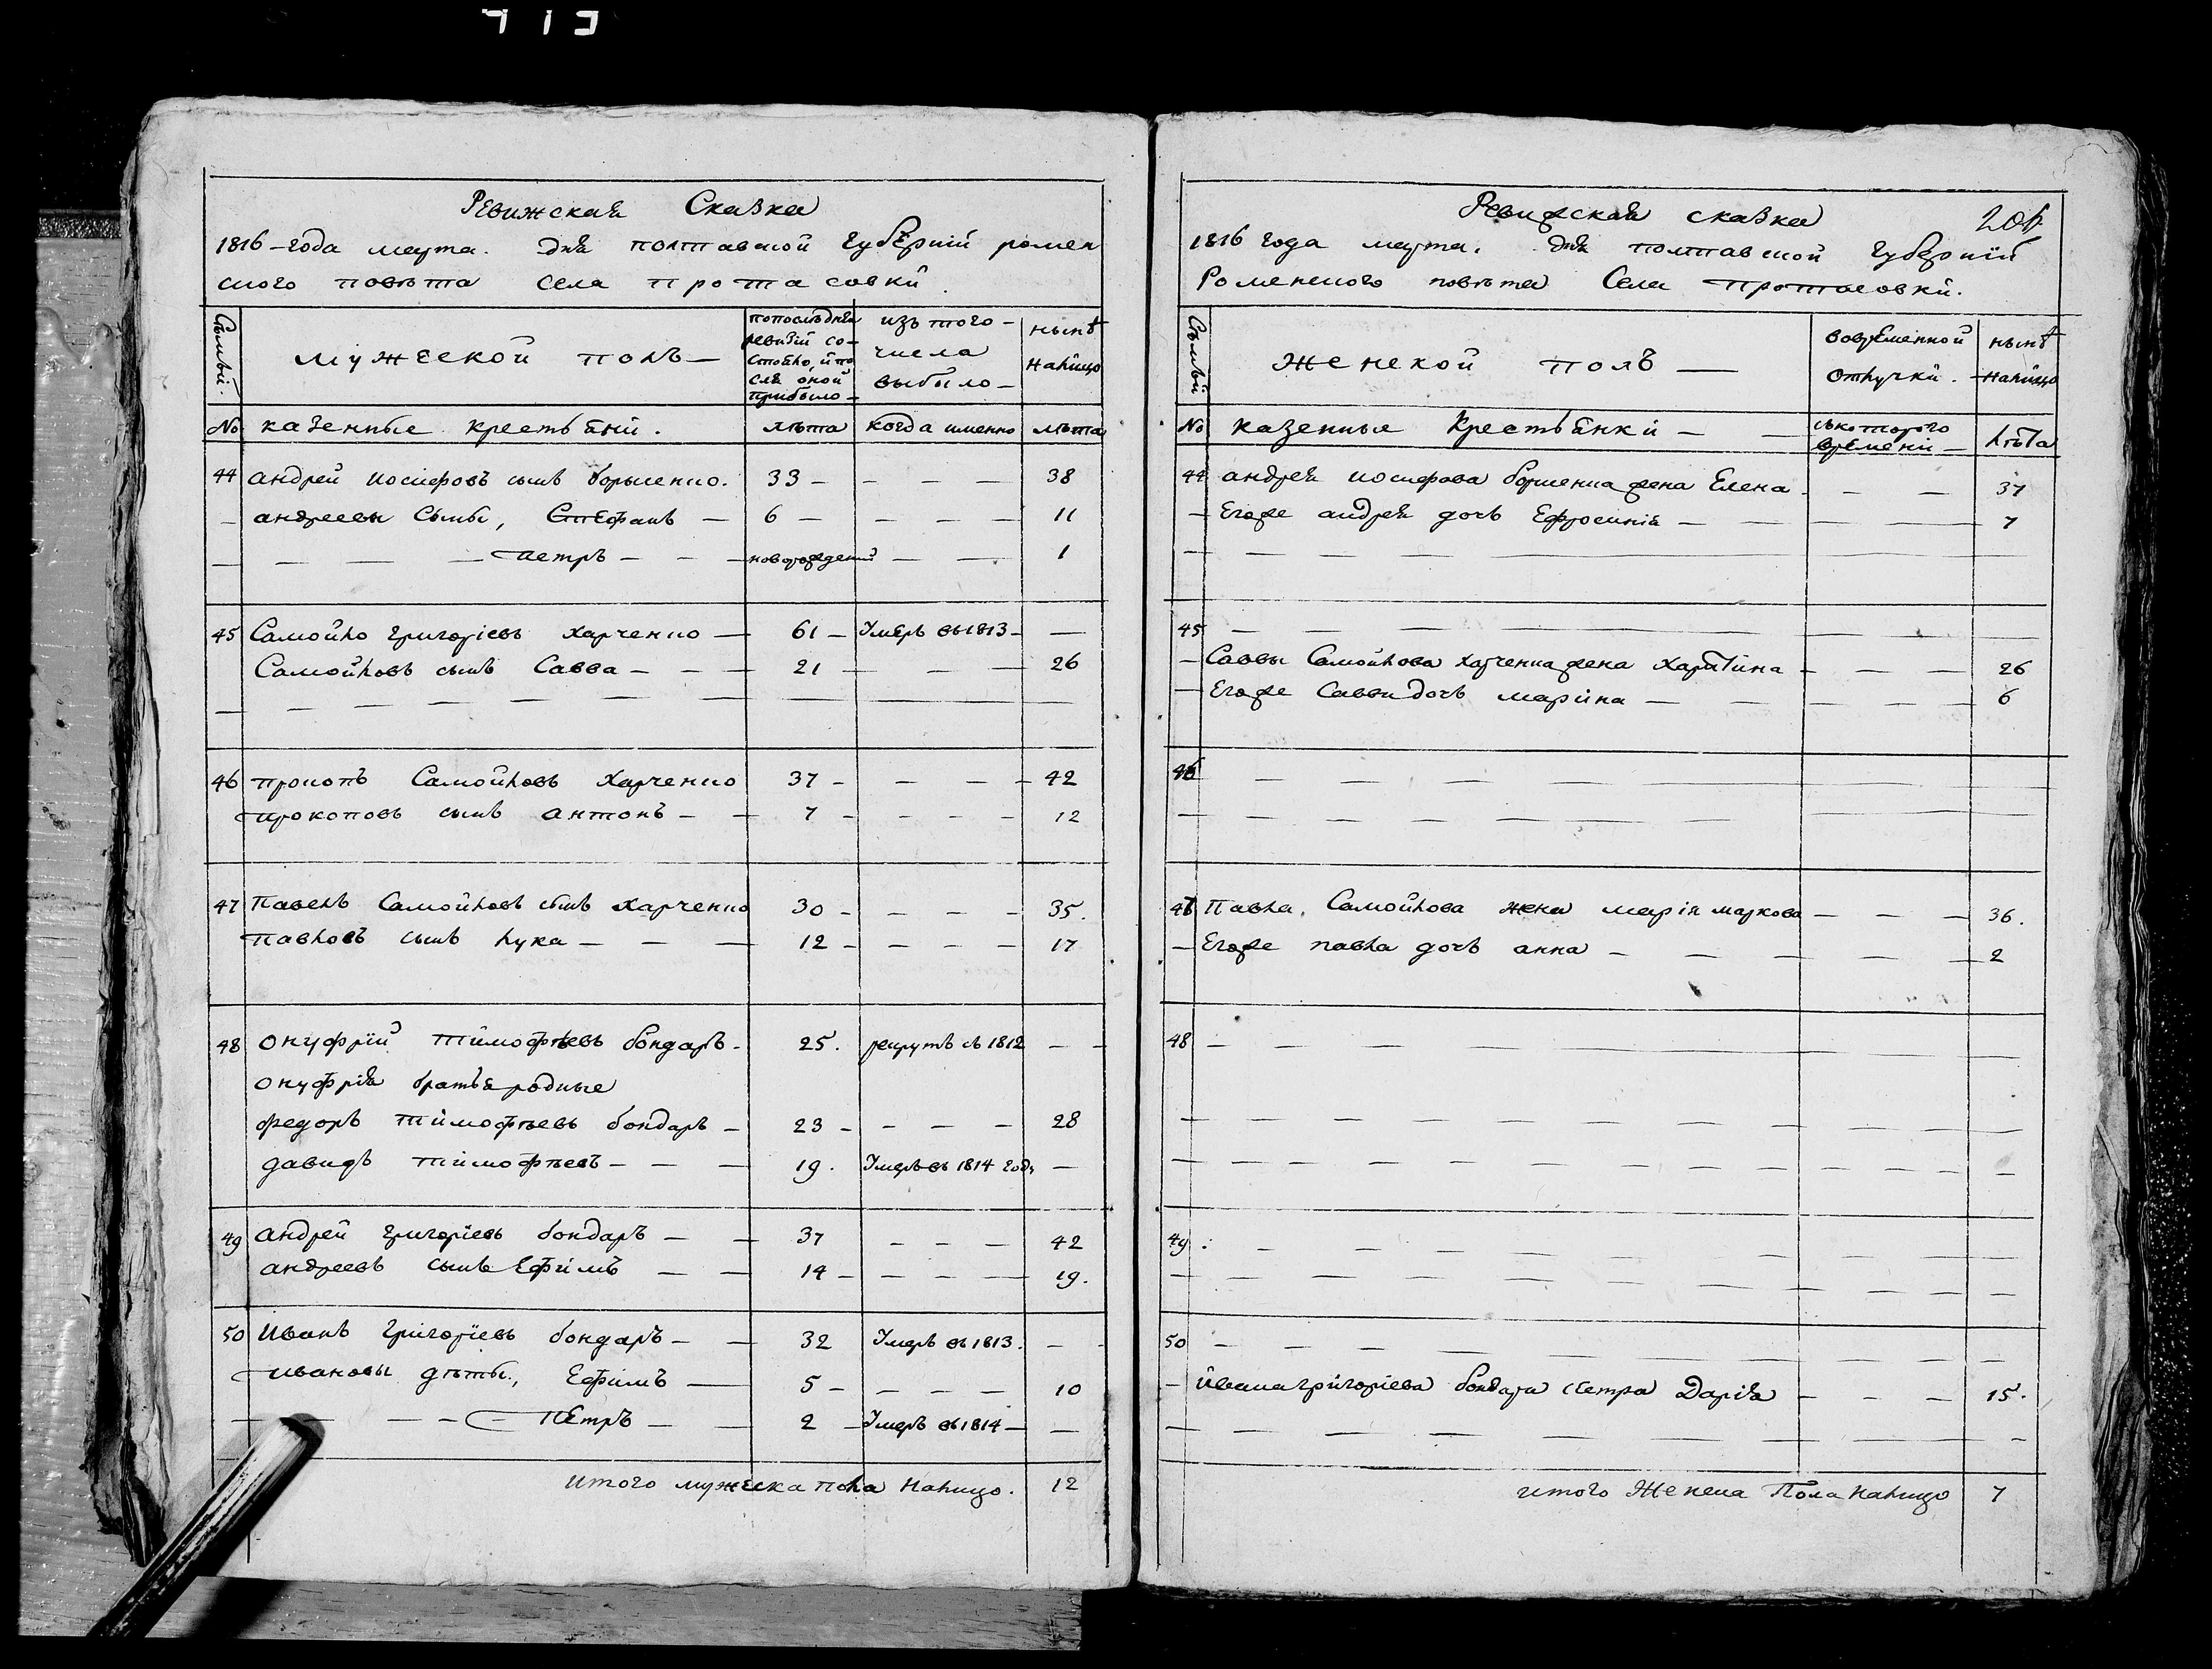 Ревижская Сказка
1816-года марта. Дня полтавской губерній ромен
ского повѣта села протасовки
Семьи.
мужеской полъ —
попослѣдней ревизіи состояло, и после оной прибыло —
изъ того — числа выбыло —
нынѣ налицо
№ казенные крестьяни. лѣта когда именно лѣта
44 андрей иосифовъ сынъ борысенко. 33 — — — — 38
— андреевы Сыны, Стефанъ — 6 — — — — 11
— — — — петръ — — — новорожденій — — 1
45 Самойло григоріевъ харченко — 61 — Умеръ въ 1813 — —
Самойловъ сынъ Савва — — — 21 — — — 26
46 прокопъ Самойловъ Харченко 37 — — — — 42
прокоповъ сынъ антонъ — — 7 — — — — 12
47 Павелъ Самойловъ сынъ харченко 30 — — — — 35.
павловъ сынъ лука — — — 12 — — — — 17
48 онуфрій тимофѣевъ бондарь — 25. рекрутъ съ 1812 — —
онуфрія братья родные
федоръ тимофѣевъ бондарь — 23 — — — — 28
давидъ тимофѣевъ — — — 19. Умеръ въ 1814 году —
49 андрей григоріевъ бондарь — — 37 — — — 42
андреевъ сынъ Ефимъ — — 14 — — — — 19.
50 Иванъ григоріевъ бондарь — — 32 Умеръ въ 1813. — —
ивановы дѣты, Ефимъ — 5 — — — — 10
— — — — Петръ — — 2 — Умеръ въ 1814 — —
итого мужеска пола налицо. 12
Ревижская сказка
1816 года марта. дня полтавской губерній
Роменского повѣта Села протасовки.
Семьи
Женской полъ —
вовременной отлучки.
нынѣ налицо
№ казенные Крестьянки — — съкоторого времени — лѣта
44 андрея иосифова борисенка жена Елена — — — 37
— Егоже андрея дочь Ефросинія — — — — — 7
45 — — — — — — — —
— Саввы Самойлова харченка жена Харитина — — — 26
— Егоже Саввы дочь марина — — — — — 6
46 — — — — — — —
47 Павла Самойлова жена марія маркова — — — 36.
— Егоже павла дочь анна — — — — — 2
48 — — — — — — —
49 — — — — — — —
50 — — — — — — —
— ивана григоріева бондаря сестра Дарія — — — 15.
итого Женска Пола налицо 7